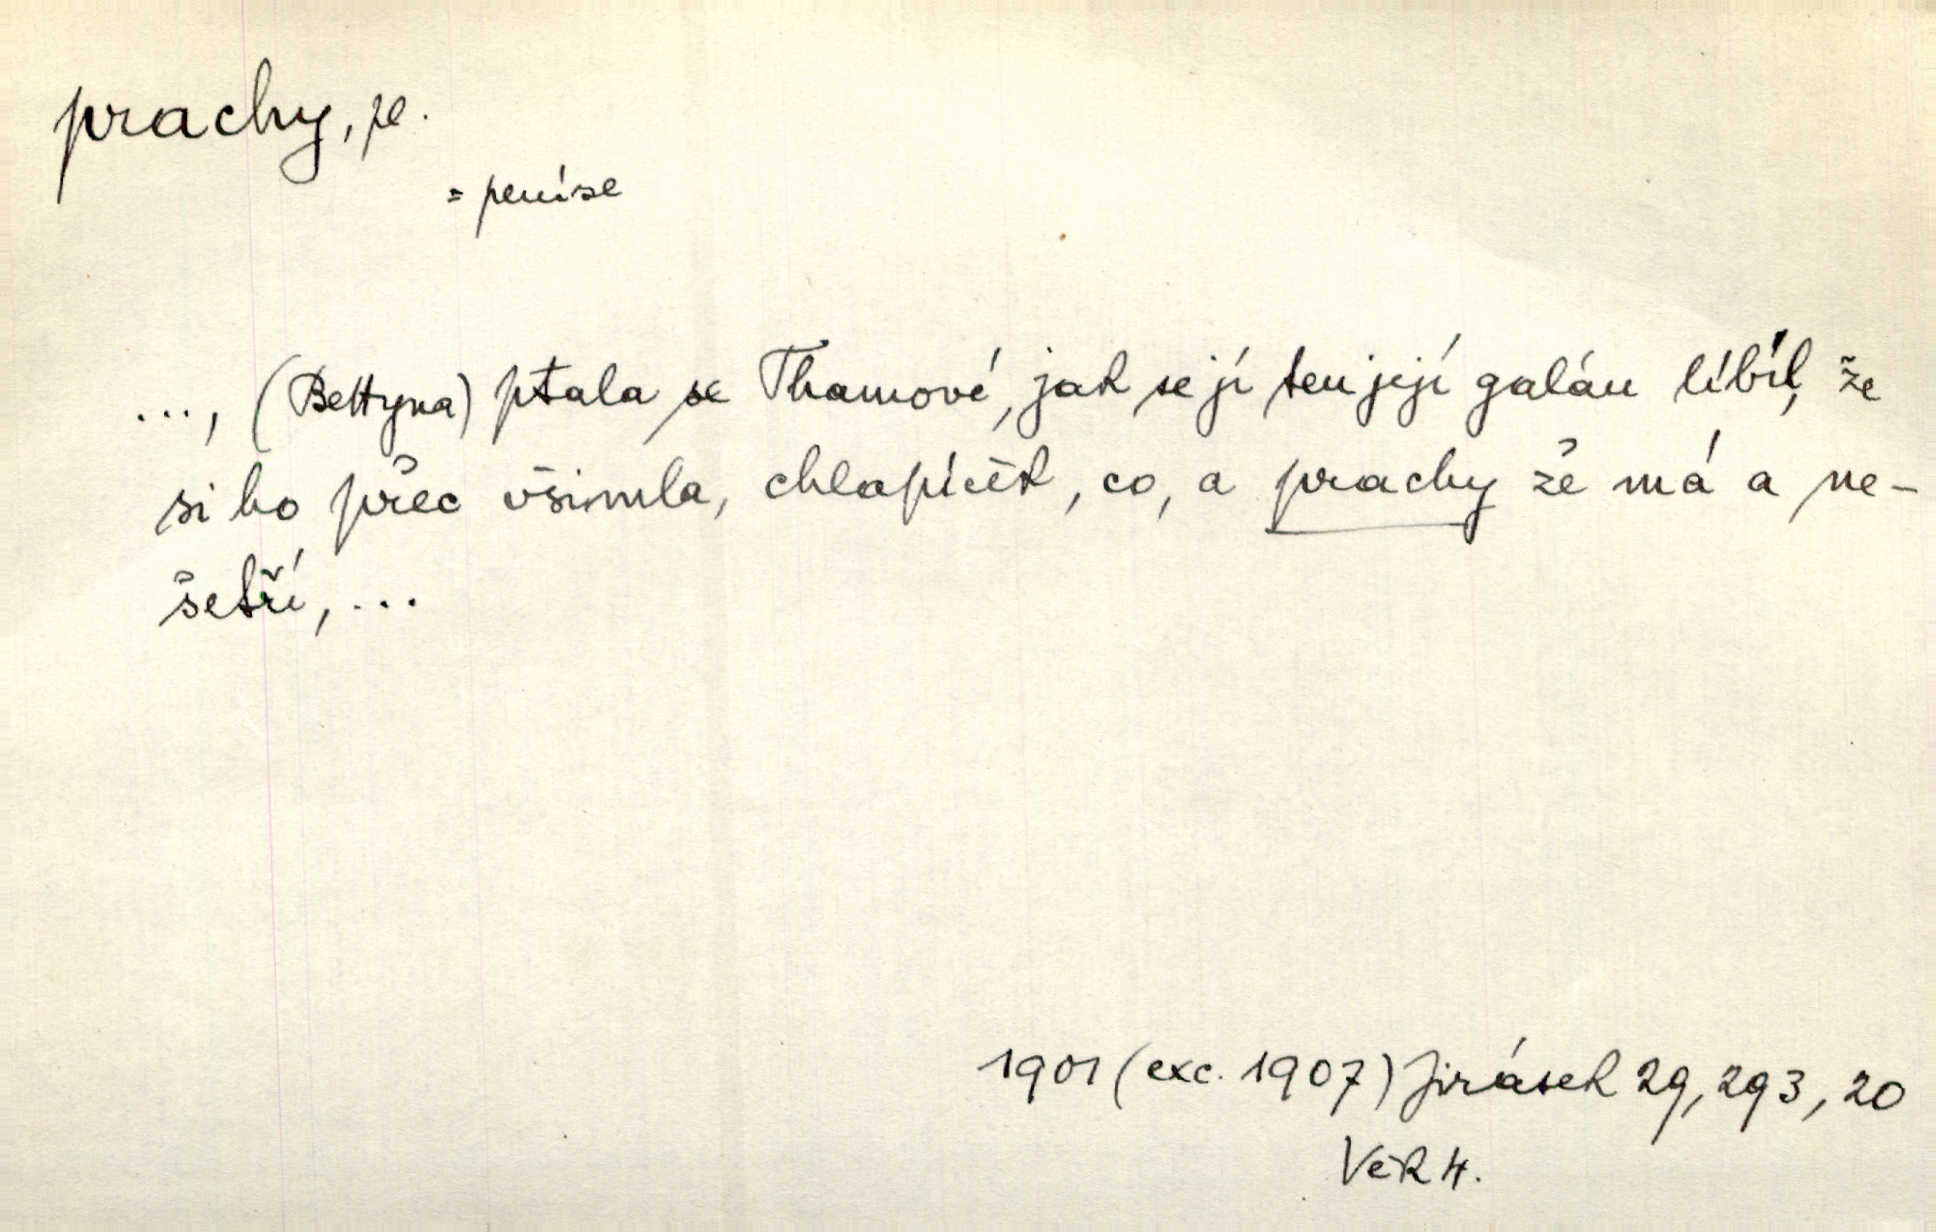 prachy, pl.
= peníze
..., (Bettyna) ptala se Thamové, jak se jí ten její galán líbil, že
si ho přec všimla, chlapíček, co, a prachy že má a ne-
šetří, ...
1901 (exc. 1907) Jirásek 29, 293, 20
Věk 4.